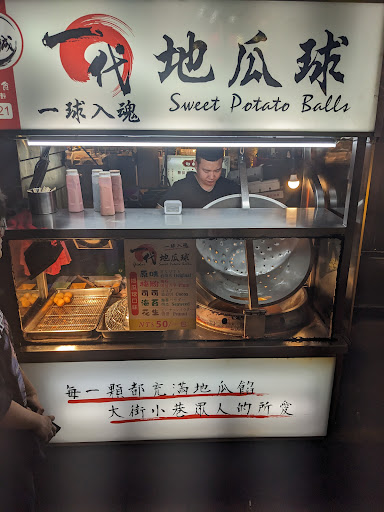 一代 地瓜球
一球入魂
Sweet Potato Balls
食
21
一球入魂
地瓜球
原味
NT$50
每一顆都充滿地瓜餡
大街小巷眾人的所愛